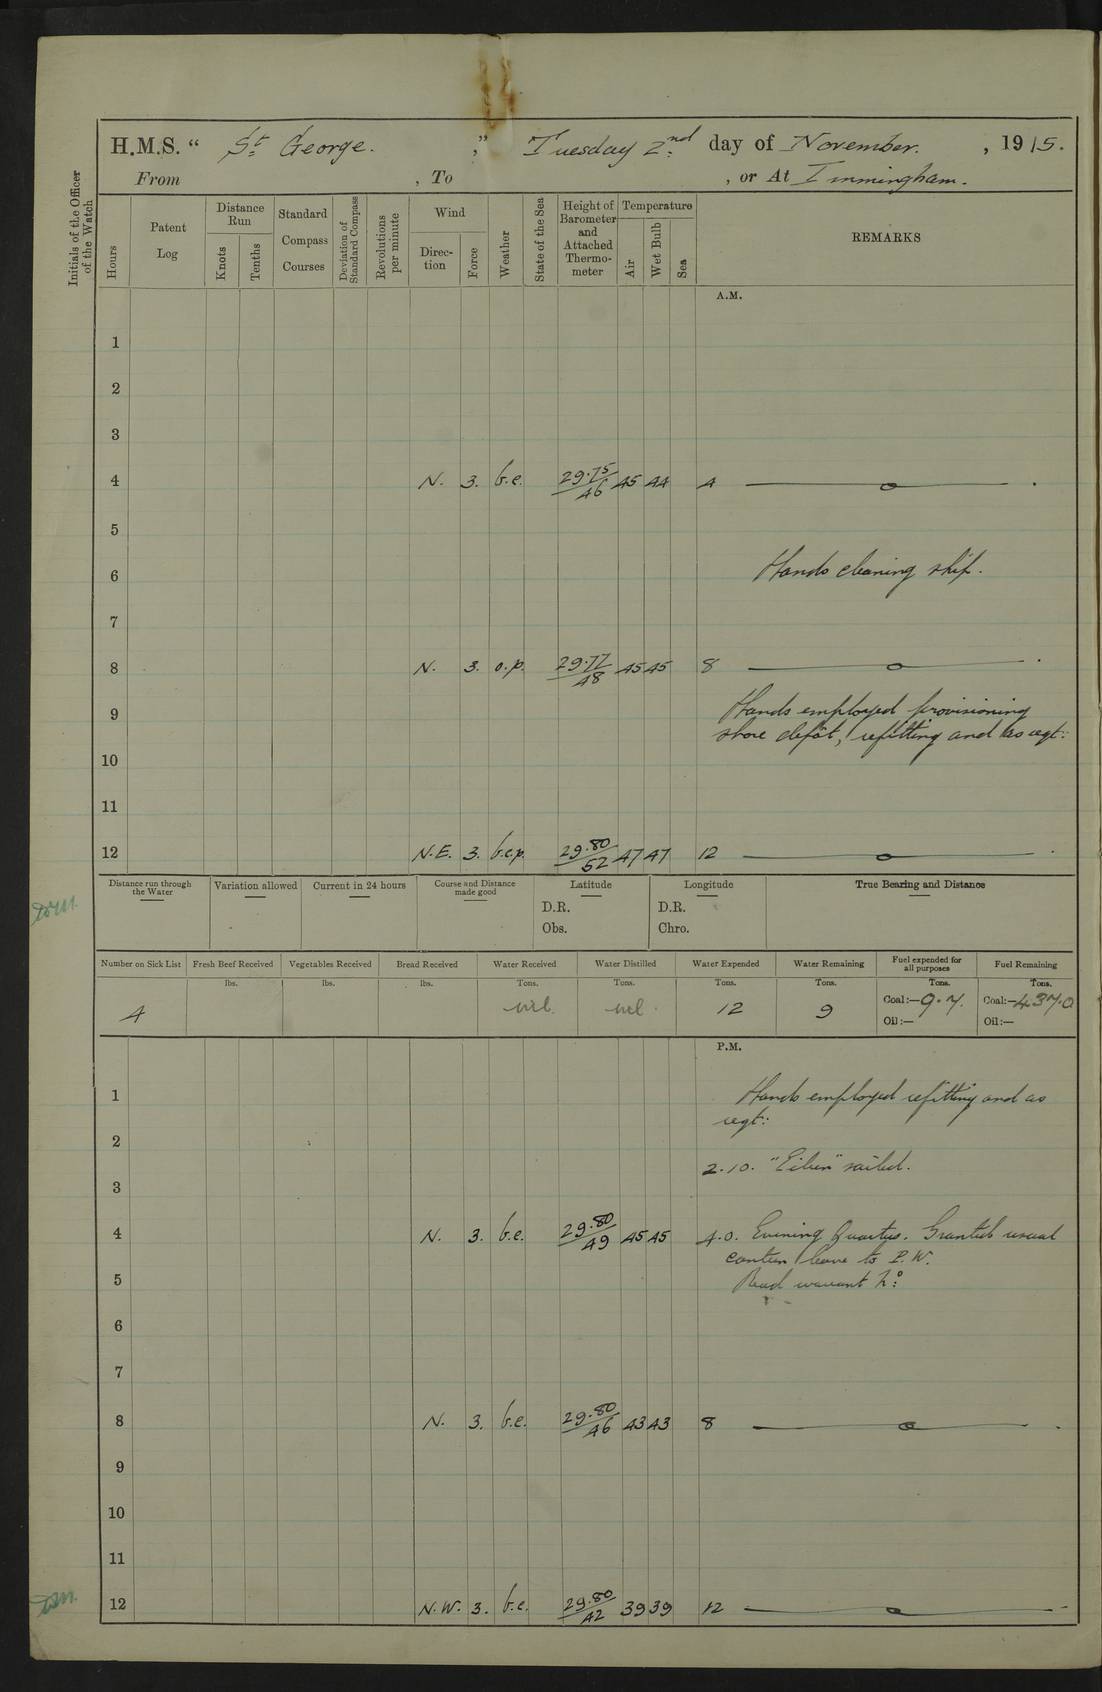 H.M.S. “ St. George. ,” Tuesday 2nd day of November. , 1915.
From , To , or At Immingham.
Initials of the Officer of the Watch
Hours
Patent Log
Distance Run
Knots
Tenths
Standard Compass Courses
Deviation of Standard Compass
Revolutions per minute
Wind
Direc-tion
Force
Weather
State of the Sea
Height of Barometer and Attached Thermo-meter
Temperature
Air
Wet Bulb
Sea
REMARKS
A.M.
1
2
3
4 N. 3. b.c. 29.75/46 45 44 4
5
6 Hands cleaning ship.
7
8 N. 3. o.p. 29.77/48 45 45 8
9 Hands employed provisioning
store depôt, refitting and as reqt:
10
11
12 N.E. 3. b.c.p. 29.80/52 47 47 12
Distance run through the Water
Variation allowed
Current in 24 hours
Course and Distance made good
Latitude
D.R.
Obs.
Longitude
D.R.
Chro.
True Bearing and Distance
Number on Sick List
Fresh Beef Received
Vegetables Received
Bread Received
Water Received
Water Distilled
Water Expended
Water Remaining
Fuel expended for all purposes
Fuel Remaining
lbs. lbs. lbs. Tons. Tons. Tons. Tons. Tons. Tons.
4 nil. nil. 12 9 Coal:—9.7. Coal:—437.0
Oil:— Oil:—
P.M.
1 Hands employed refitting and as
reqt:
2
2.10. sailed.
3
4 N. 3. b.c. 29.80/49 45 45 4.0. Evening Quarters. Granted usual
canteen leave to P.W.
5 Read warrant No:
6
7
8 N. 3. b.c. 29.80/46 43 43 8
9
10
11
12 N.W. 3. b.c. 29.80/42 39 39 12